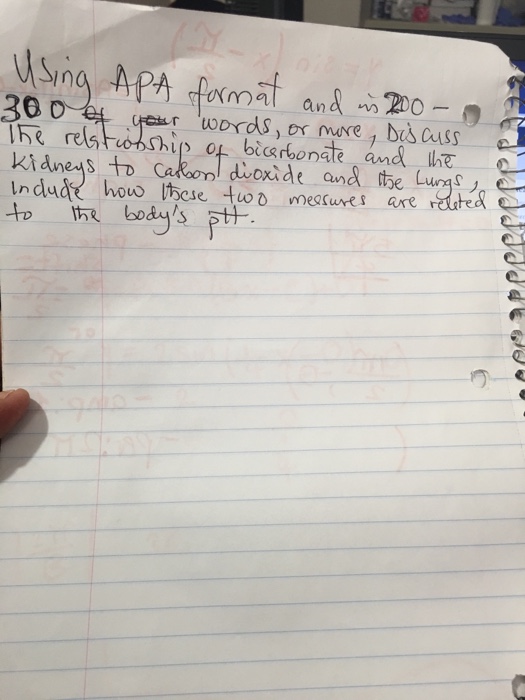 Using APA format and in 200 -
300 of your words, or more, Discuss
The relationship of bicarbonate and the
kidneys to carbon dioxide and the Lungs,
Include how these two measures are related
to the body's pH.